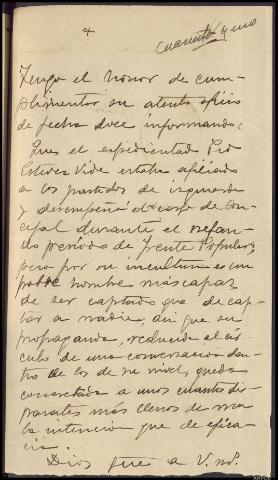 4
cuarenta y uno
Tengo el honor de cum-
plimentar su atento oficio
de fecha doce informando:
Que el expedientado Pio
Esteves Vide estaba afiliado
a los partidos de izquierda
y desempeñó el cargo de Con-
cejal durante el nefan-
do periodo de Frente Popular;
pero por su incultura es un
pobre hombre más capaz
de ser captado que de cap-
tar a nadie; asi que su
propaganda, reducida al cir-
culo de una conversación den-
tro de los de su nivel, quedó
concretada a unos cuantos dis-
parates más llenos de ma-
la intención que de efica-
cia.
Dios gue a V. ms.